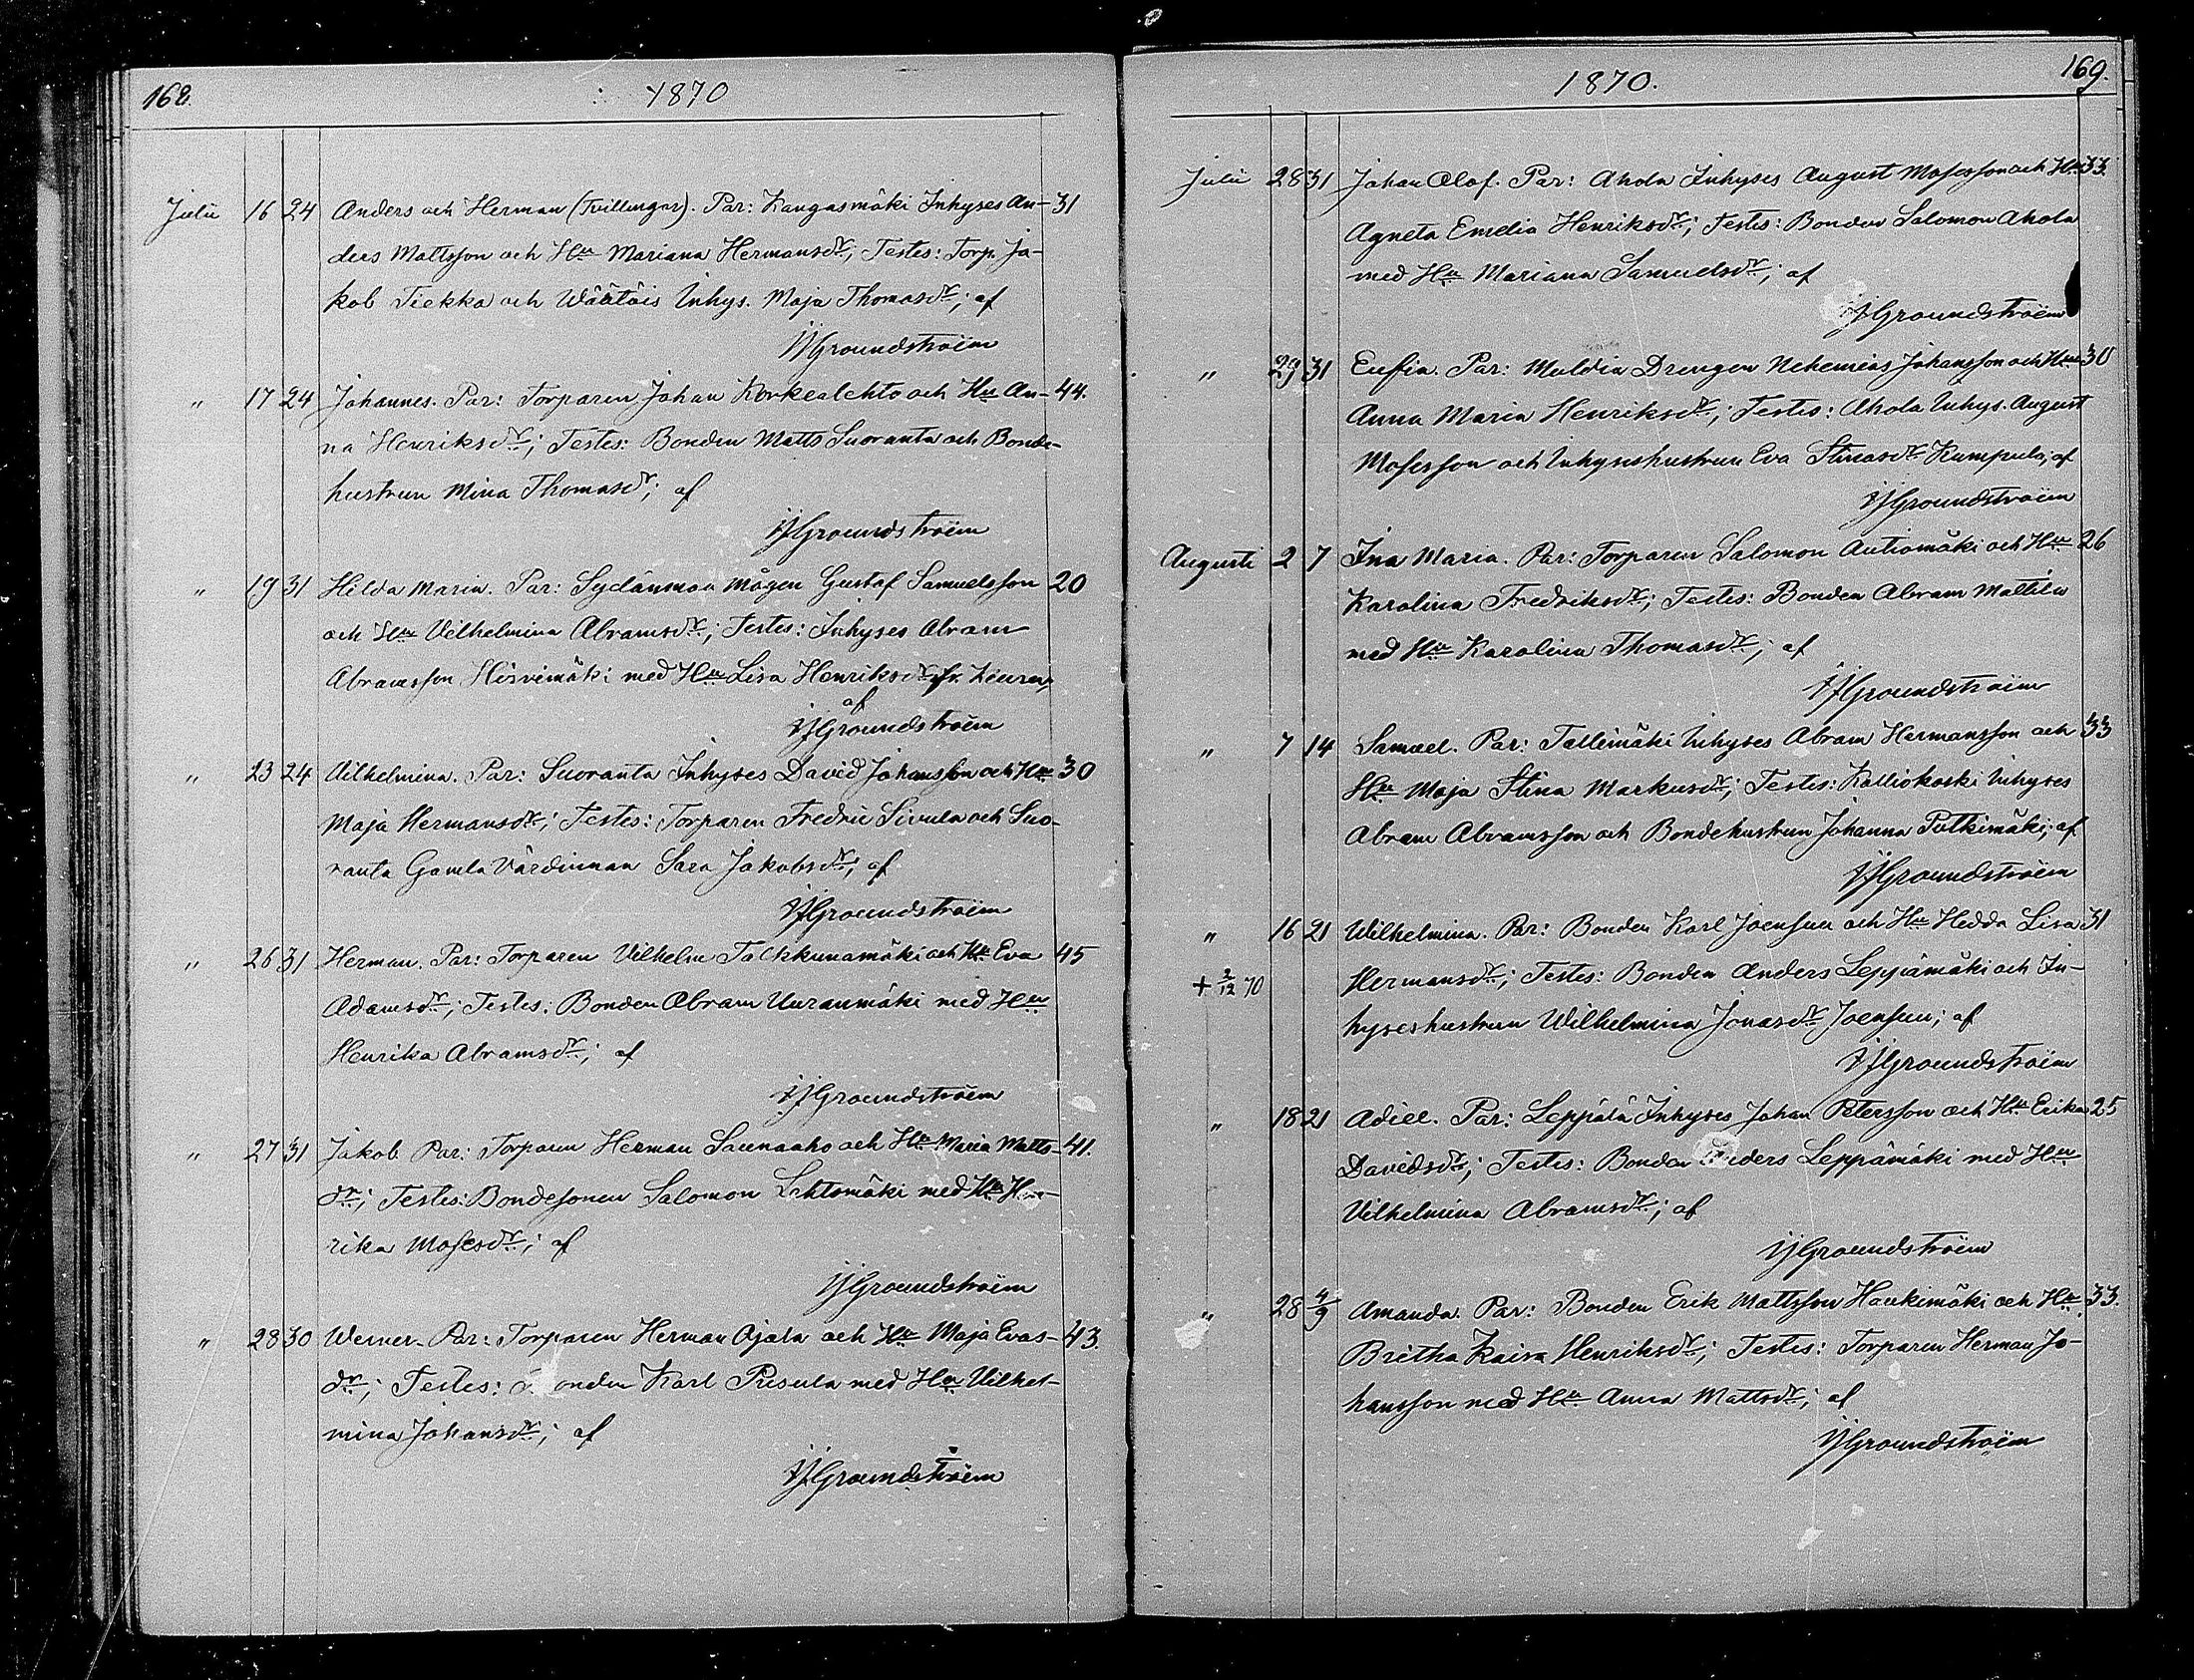 168.
1870
Julii 16 24 Anders och Herman (Tvillingar). Par: Kangasmäki Inhyses An- 31
ders Mattsson och Hu Mariana Hermansdr; Testes: Torp. Ja-
kob Tiekka och Wäätäis Inhys. Maja Thomasdr; af
IJGroundstroëm
" 17 24 Johannes. Par: Torparen Johan Korkealehto och Hu An- 44.
na Henriksdr; Testes: Bonden Matts Suoranta och Bonde-
hustrun Mina Thomasdr; af
IJGroundstroëm
" 19 31 Hilda Maria. Par: Sydänmaa Mågen Gustaf Samuelsson 20
och Hu Vilhelmina Abramsdr; Testes: Inhyses Abram
Abramsson Hirvimäki med Hu Lisa Henriksdr fr.
af
IJGroundstroëm
" 23 24 Vilhelmina. Par: Suoranta Inhyses David Johansson och Hu 30
Maja Hermansdr; Testes: Torparen Fredric Sivula och Suo-
ranta Gamla Värdinnan Sara Jakobsdr; af
IJGroundstroëm
" 26 31 Herman. Par: Torparen Vilhelm Talkkunamäki och Hu Eva 45
Adamsdr; Testes: Bonden Abram Uuranmäki med Hu
Henrika Abramsdr; af
IJGroundstroëm
" 27 31 Jakob. Par: Torparen Herman Saunaaho och Hu Maria Matts- 41.
dr; Testes: Bondesonen Salomon Lehtomäki med Hu Hen-
rika Mosesdr; af
IJGroundstroëm
" 28 30 Werner. Par: Torparen Herman Ojala och Hu Maja Evas- 43.
dr; Testes: Bonden Karl Pusula med Hu Vilhel-
mina Johansdr; af
IJGroundstroëm
1870.
169.
Julii 28 31 Johan Olof. Par: Ahola Inhyses August Mosesson och Hu 33.
Agneta Emelia Henriksdr; Testes: Bonden Salomon Ahola
med Hu Mariana Samuelsdr; af
IJGroundstroëm
" 29 31 Eufia. Par: Muldia Drengen Nehemias Johansson och Hu 30
Anna Maria Henriksdr; Testes: Ahola Inhys. August
Mosesson och Inhyseshustrun Eva Stinasdr Kumpula; af
IJGroundstroëm
Augusti 2 7 Ina Maria. Par: Torparen Salomon Autiomäki och Hu 26
Karolina Fredriksdr; Testes: Bonden Abram Mattila
med Hu Karolina Thomasdr; af
IJGroundstroëm
" 7 14 Samuel. Par: Tallimäki Inhyses Abram Hermansson och 33
Hu Maja Stina Markusdr; Testes: Kalliokoski Inhyses
Abram Abramsson och Bondehustrun Johanna Putkimäki; af
IJGroundstroëm
" 16 21 Wilhelmina. Par: Bonden Karl Joensuu och Hu Hedda Lisa 31
+ 2/12 70 Hermansdr; Testes: Bonden Anders Leppämäki och In-
hyseshustrun Wilhelmina Jonasdr Joensuu; af
IJGroundstroëm
" 18 21 Adiel. Par: Leppälä Inhyses Johan Petersson och Hu Erika 25
Davidsdr; Testes: Bonden Anders Leppämäki med Hu
Vilhelmina Abramsdr; af
IJGroundstroëm
" 28 4/9 Amanda. Par: Bonden Erik Mattsson Haukimäki och Hu 33.
Britha Kaisa Henriksdr; Testes: Torparen Herman Jo-
hansson med Hu Anna Mattsdr; af
IJGroundstroëm